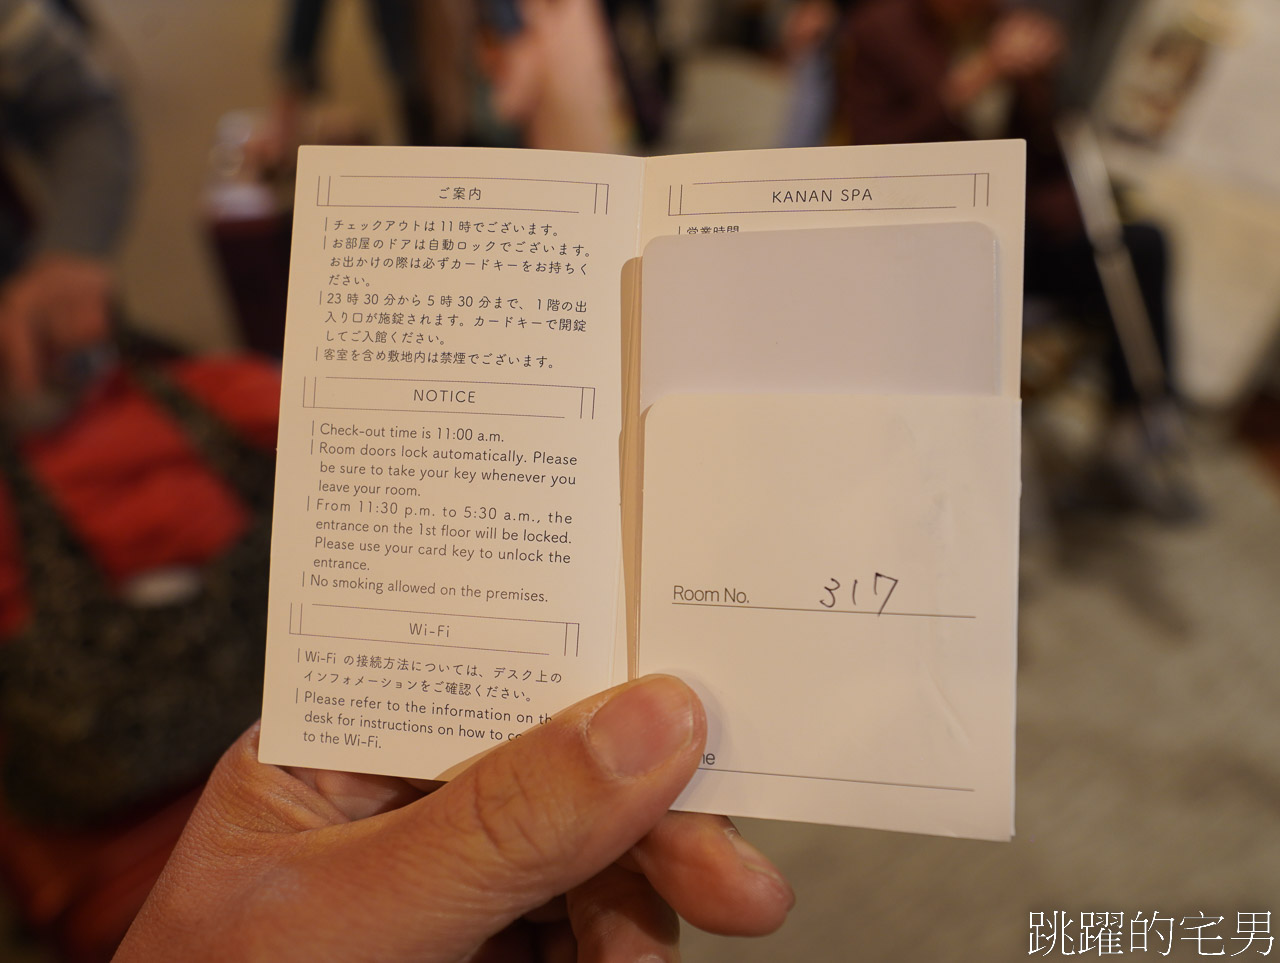 ご案内
チェックアウトは11時でございます。
お部屋のドアは自動ロックでございます。
お出かけの際は必ずカードキーをお持ちく
ださい。
23時30分から5時30分まで、1階の出
入り口が施錠されます。カードキーで開錠
してご入館ください。
客室を含め敷地内は禁煙でございます。
NOTICE
Check-out time is 11:00 a.m.
Room doors lock automatically. Please
be sure to take your key whenever you
leave your room.
From 11:30 p.m. to 5:30 a.m., the
entrance on the 1st floor will be locked.
Please use your card key to unlock the
entrance.
No smoking allowed on the premises.
Wi-Fi
Wi-Fi の接続方法については、デスク上の
インフォメーションをご確認ください。
Please refer to the information on
desk for instructions on how to
to the Wi-Fi.
KANAN SPA
営業時間
Room No. 317
跳躍的宅男